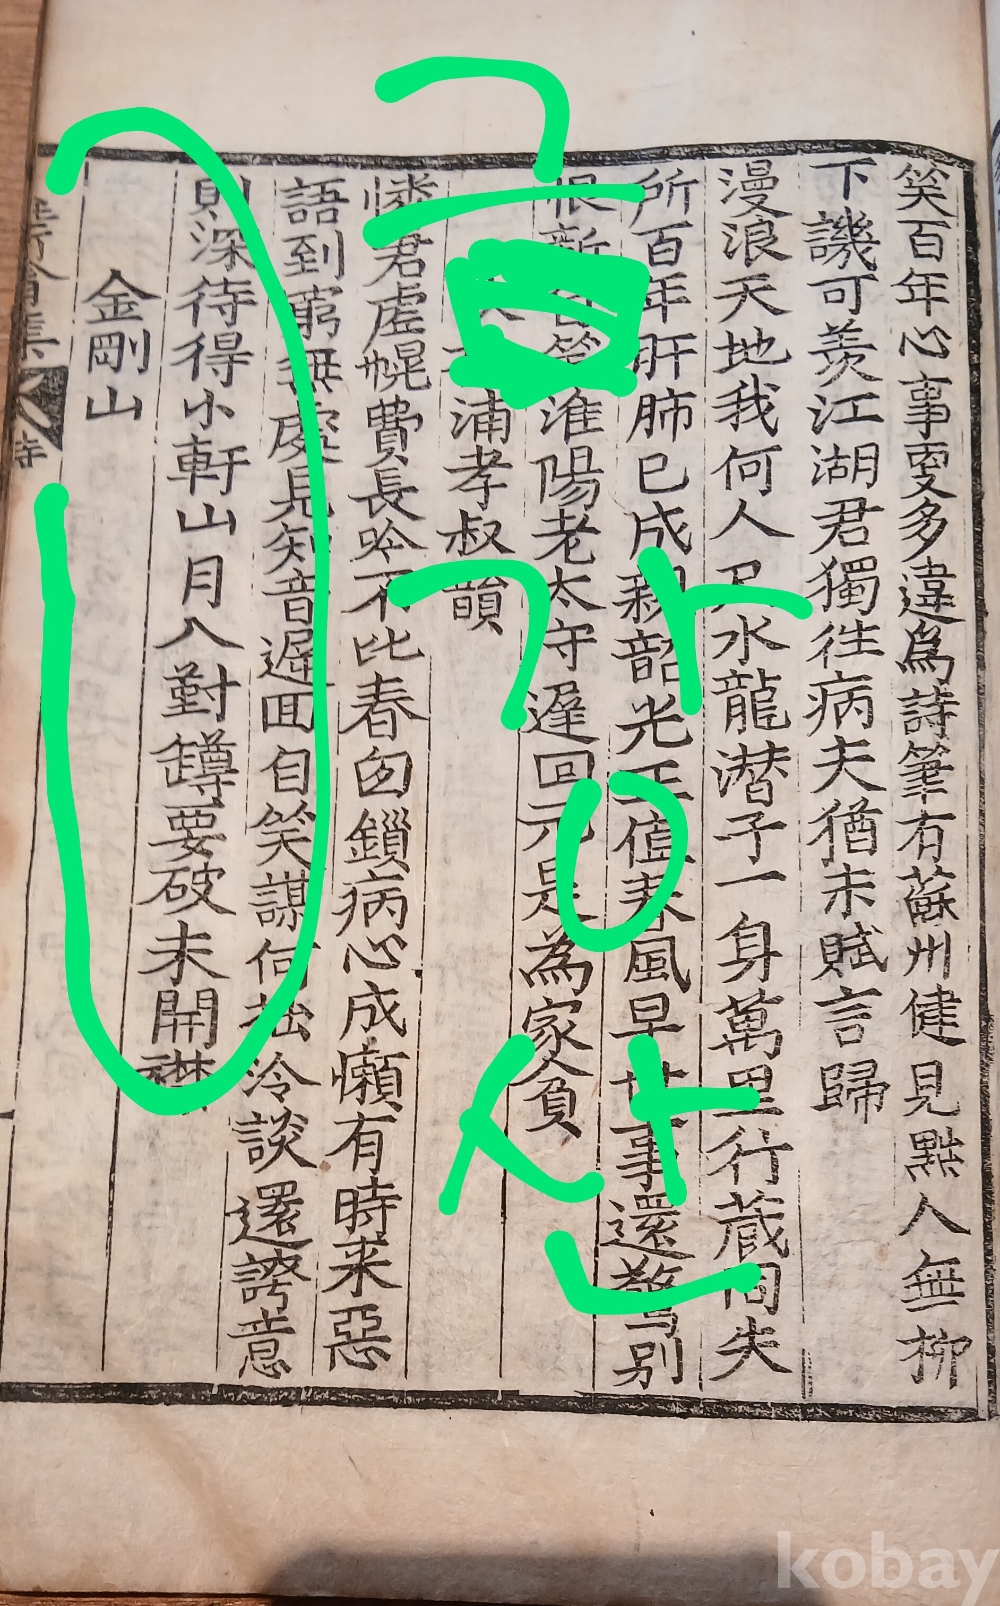 笑百年心事更多違爲詩筆有蘇州健見黙人無柳
下譏可羨江湖君獨往病夫猶未賦言歸
漫浪天地我何人尺水龍潜子一身萬里行蔵同失
所百年肝肺已成韶光正值春風早世事還驚別
恨新淮陽老太守遲回元是為家貧
浦孝叔韻
憐君虛幌費長吟不比春囱鎻病心成懶有時来惡
語到窮無處見知音遲回自笑謀何拙冷談還誇意
則深待得小軒山月入對罇要破未開襟
金剛山
集
금강산
kobay